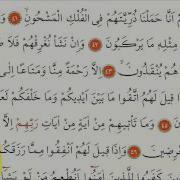 أَنَّا حَمَلْنَا ذُرِّيَّتَهُمْ فِي ٱلْفُلْكِ ٱلْمَشْحُونِ ٤١
مِّثْلِهِۦ مَا يَرْكَبُونَ ٤٢ وَإِن نَّشَأْ نُغْرِقْهُمْ فَلَا
هُمْ يُنقَذُونَ ٤٣ إِلَّا رَحْمَةً مِّنَّا وَمَتَٰعًا إِلَىٰ
قِيلَ لَهُمُ ٱتَّقُوا۟ مَا بَيْنَ أَيْدِيكُمْ وَمَا خَلْفَكُمْ لَعَلَّ
٤٥ وَمَا تَأْتِيهِم مِّنْ ءَايَةٍ مِّنْ ءَايَٰتِ رَبِّهِمْ إِلَّا
رِضِينَ ٤٦ وَإِذَا قِيلَ لَهُمْ أَنفِقُوا۟ مِمَّا رَزَقَكُ
كَفَرُوا۟ لِلَّذِينَ ءَامَنُوٓا۟ أَنُطْعِمُ مَن لَّوْ